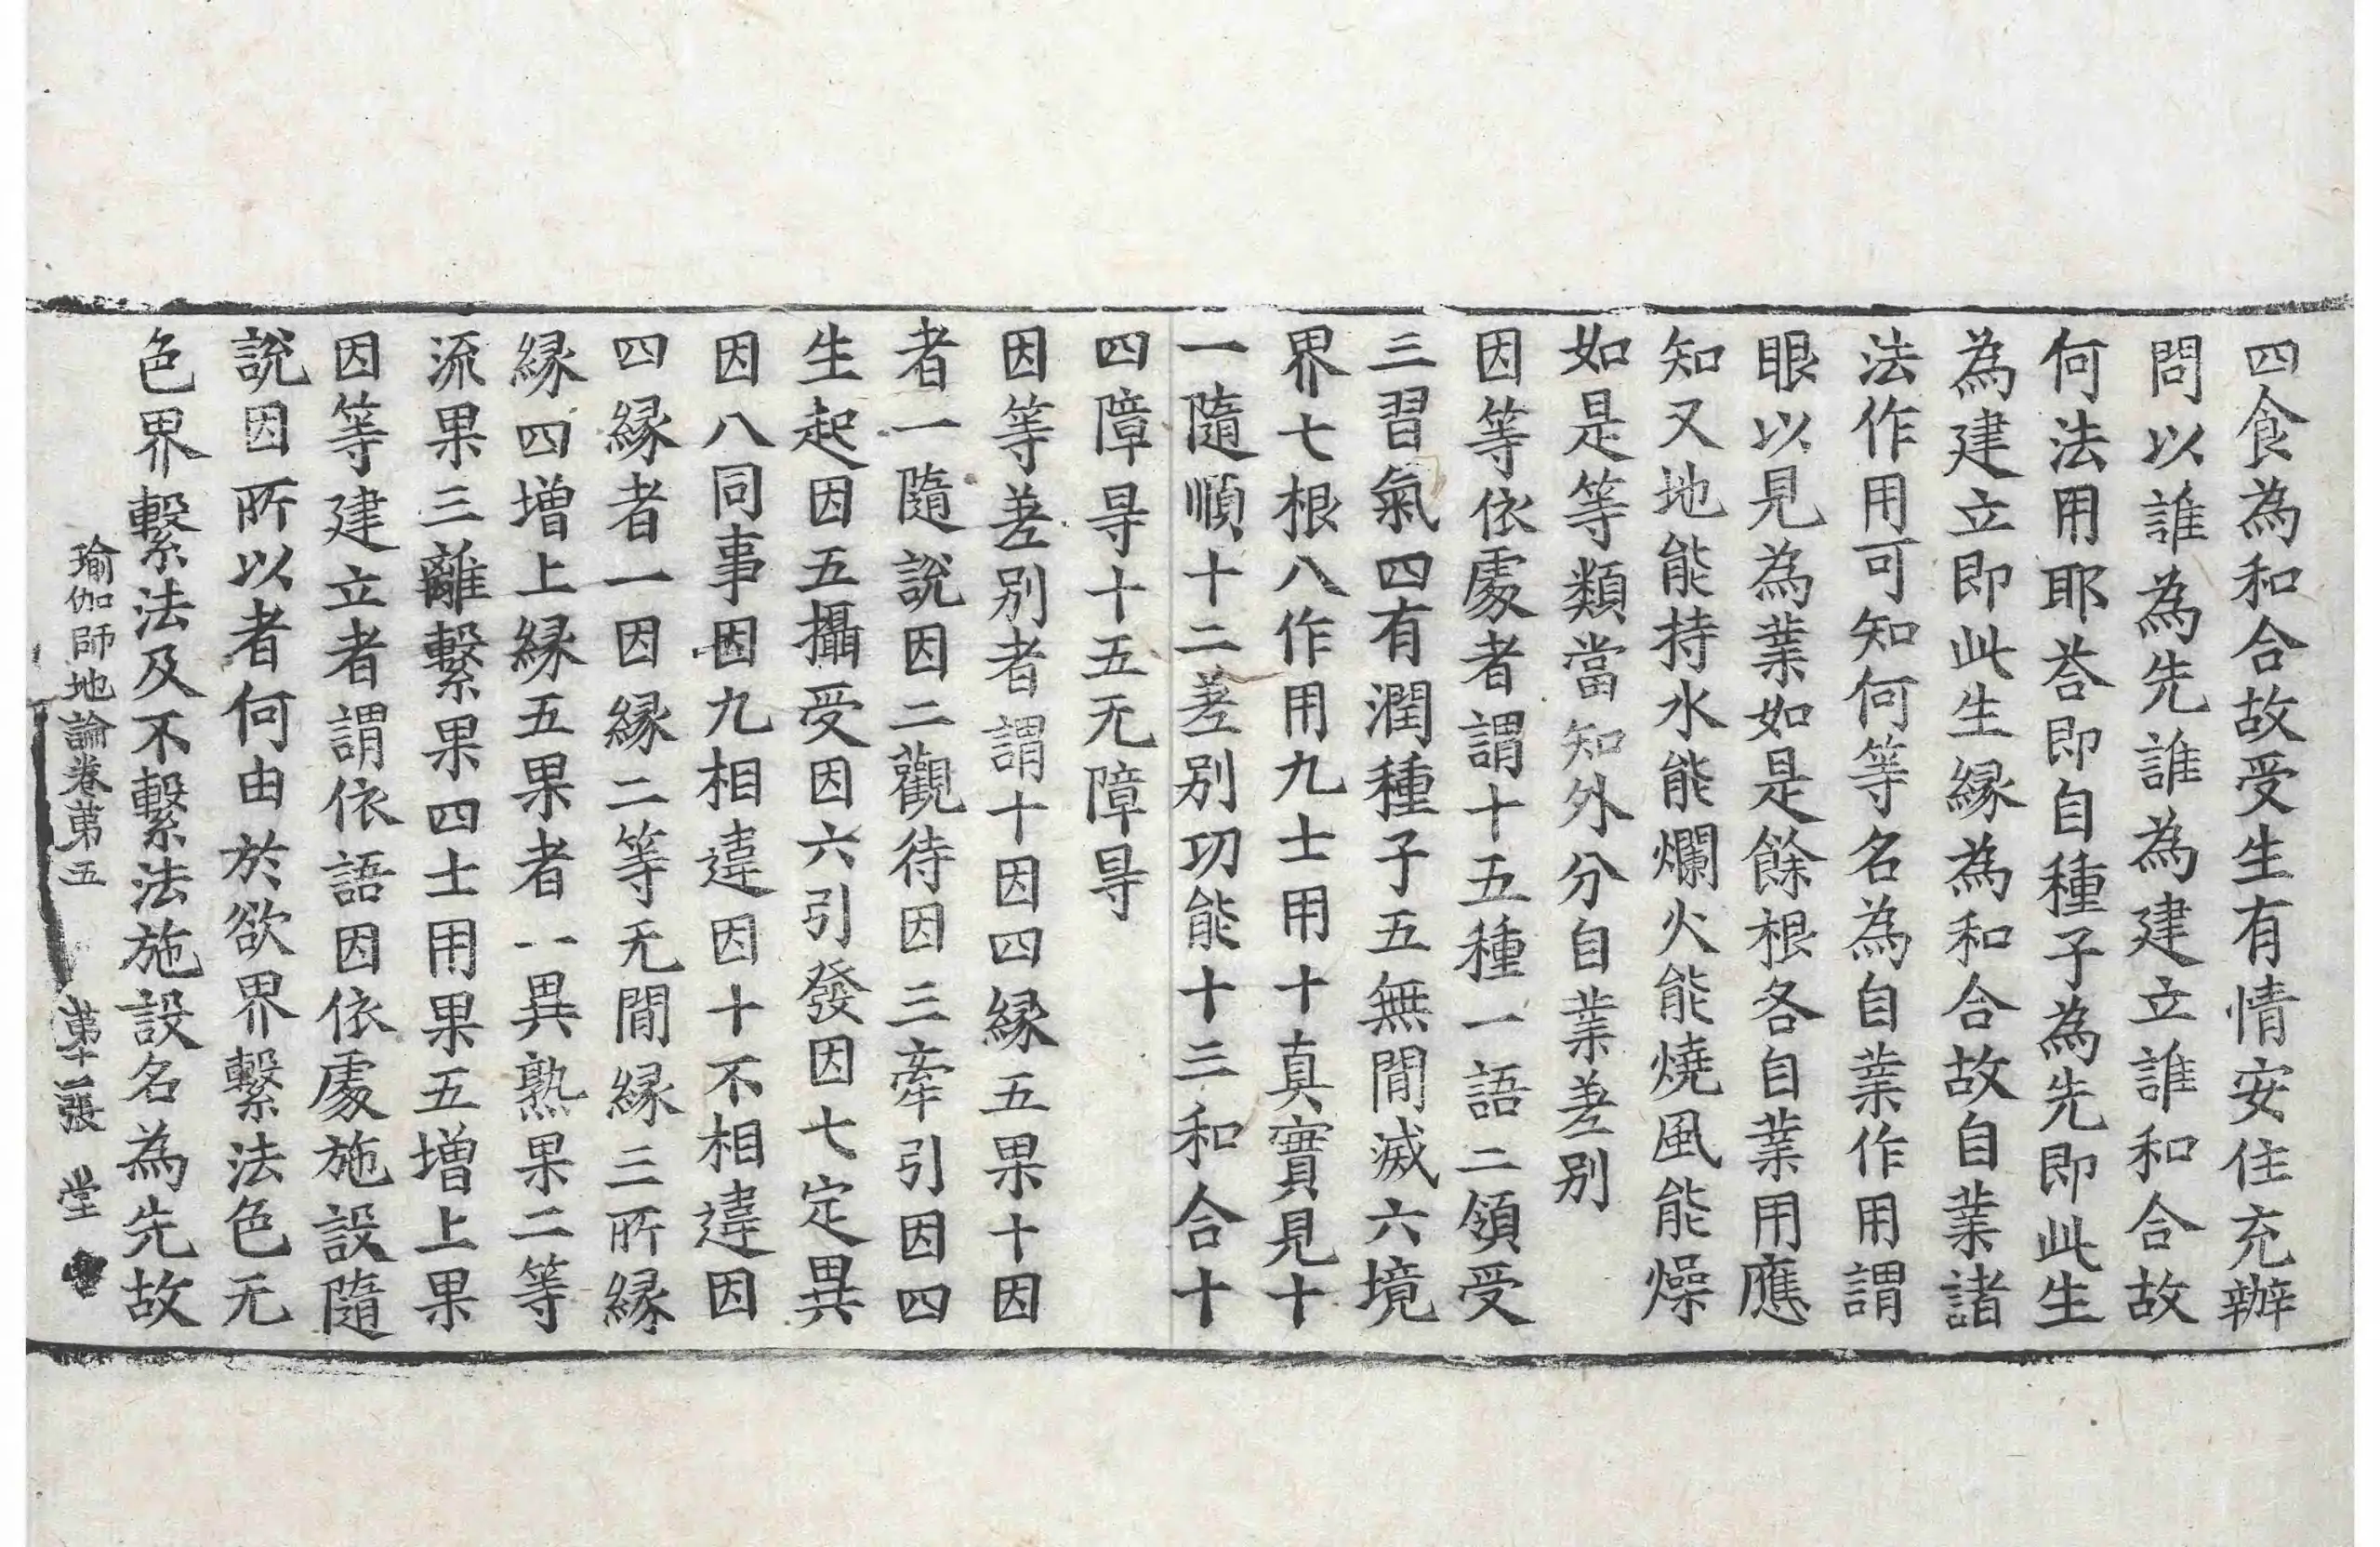 四食為和合故受生有情安住充辦
問以誰為先誰為建立誰和合故
何法用耶荅即自種子為先即此生
為建立即此生緣為和合故自業諸
法作用可知何等名為自業作用謂
眼以見為業如是餘根各自業用應
知又地能持水能爛火能燒風能燥
如是等類當知外分自業差別
因等依處者謂十五種一語二領受
三習氣四有潤種子五無間滅六境
界七根八作用九士用十真實見十
一隨順十二差別功能十三和合十
四障㝵十五无障㝵
因等差別者謂十因四緣五果十因
者一隨說因二觀待因三牽引因四
生起因五攝受因六引發因七定異
因八同事因九相違因十不相違因
四緣者一因緣二等无間緣三所緣
緣四增上緣五果者一異熟果二等
流果三離繫果四士用果五增上果
因等建立者謂依語因依處施設隨
說因所以者何由於欲界繫法色无
色界繫法及不繫法施設名為先故
瑜伽師地論卷第五 第十二張 堂